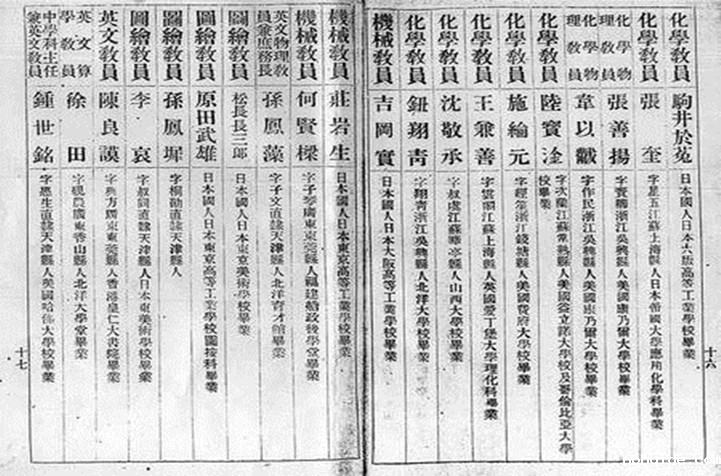 化學教員 駒井於菟 日本國人日本大阪高等工業學校畢業
化學教員 張奎 字星五江蘇上海縣人日本帝國大學應用化學科畢業
化學物理教員 張善揚 字賓鵾浙江吳興縣人美國康乃爾大學校畢業
化學物理教員 韋以黻 字作民浙江吳興縣人美國康乃爾大學校畢業
化學教員 陸寶淦 字次蘭江蘇常熟縣人美國益立諾大學校及哥倫比亞大學校畢業
化學教員 施綸元 字經笙浙江錢塘縣人美國費府大學校畢業
化學教員 王兼善 字雲閣江蘇上海縣人英國愛丁堡大學理化科畢業
化學教員 沈敬承 字叔虔江蘇華亭縣人山西大學校畢業
化學教員 鈕翔青 字翔青浙江吳興縣人北洋大學校畢業
機械教員 吉岡實 日本國人日本大阪高等工業學校畢業
十六
機械教員 莊岩生 日本國人日本東京高等工業學校畢業
機械教員 何賢樑 字子琴廣東東莞縣人福建船政後學堂畢業
英文物理教員兼庶務長 孫鳳藻 字子文直隸天津縣人北洋育才館畢業
圖繪教員 松長長三郎 日本國人日本東京美術學校畢業
圖繪教員 原田武雄 日本國人日本東京高等工業學校圖按科畢業
圖繪教員 孫鳳墀 字桐勛直隸天津縣人
圖繪教員 李哀 字叔同直隸天津縣人日本東美術學校畢業
英文教員 陳良謨 字典方廣東東莞縣人香港皇仁大書院畢業
英文算學教員 徐田 字硯農廣東香山縣人北洋大學堂畢業
中學科主任兼英文教員 鍾世銘 字蕙生直隸天津縣人美國哈佛大學校畢業
十七